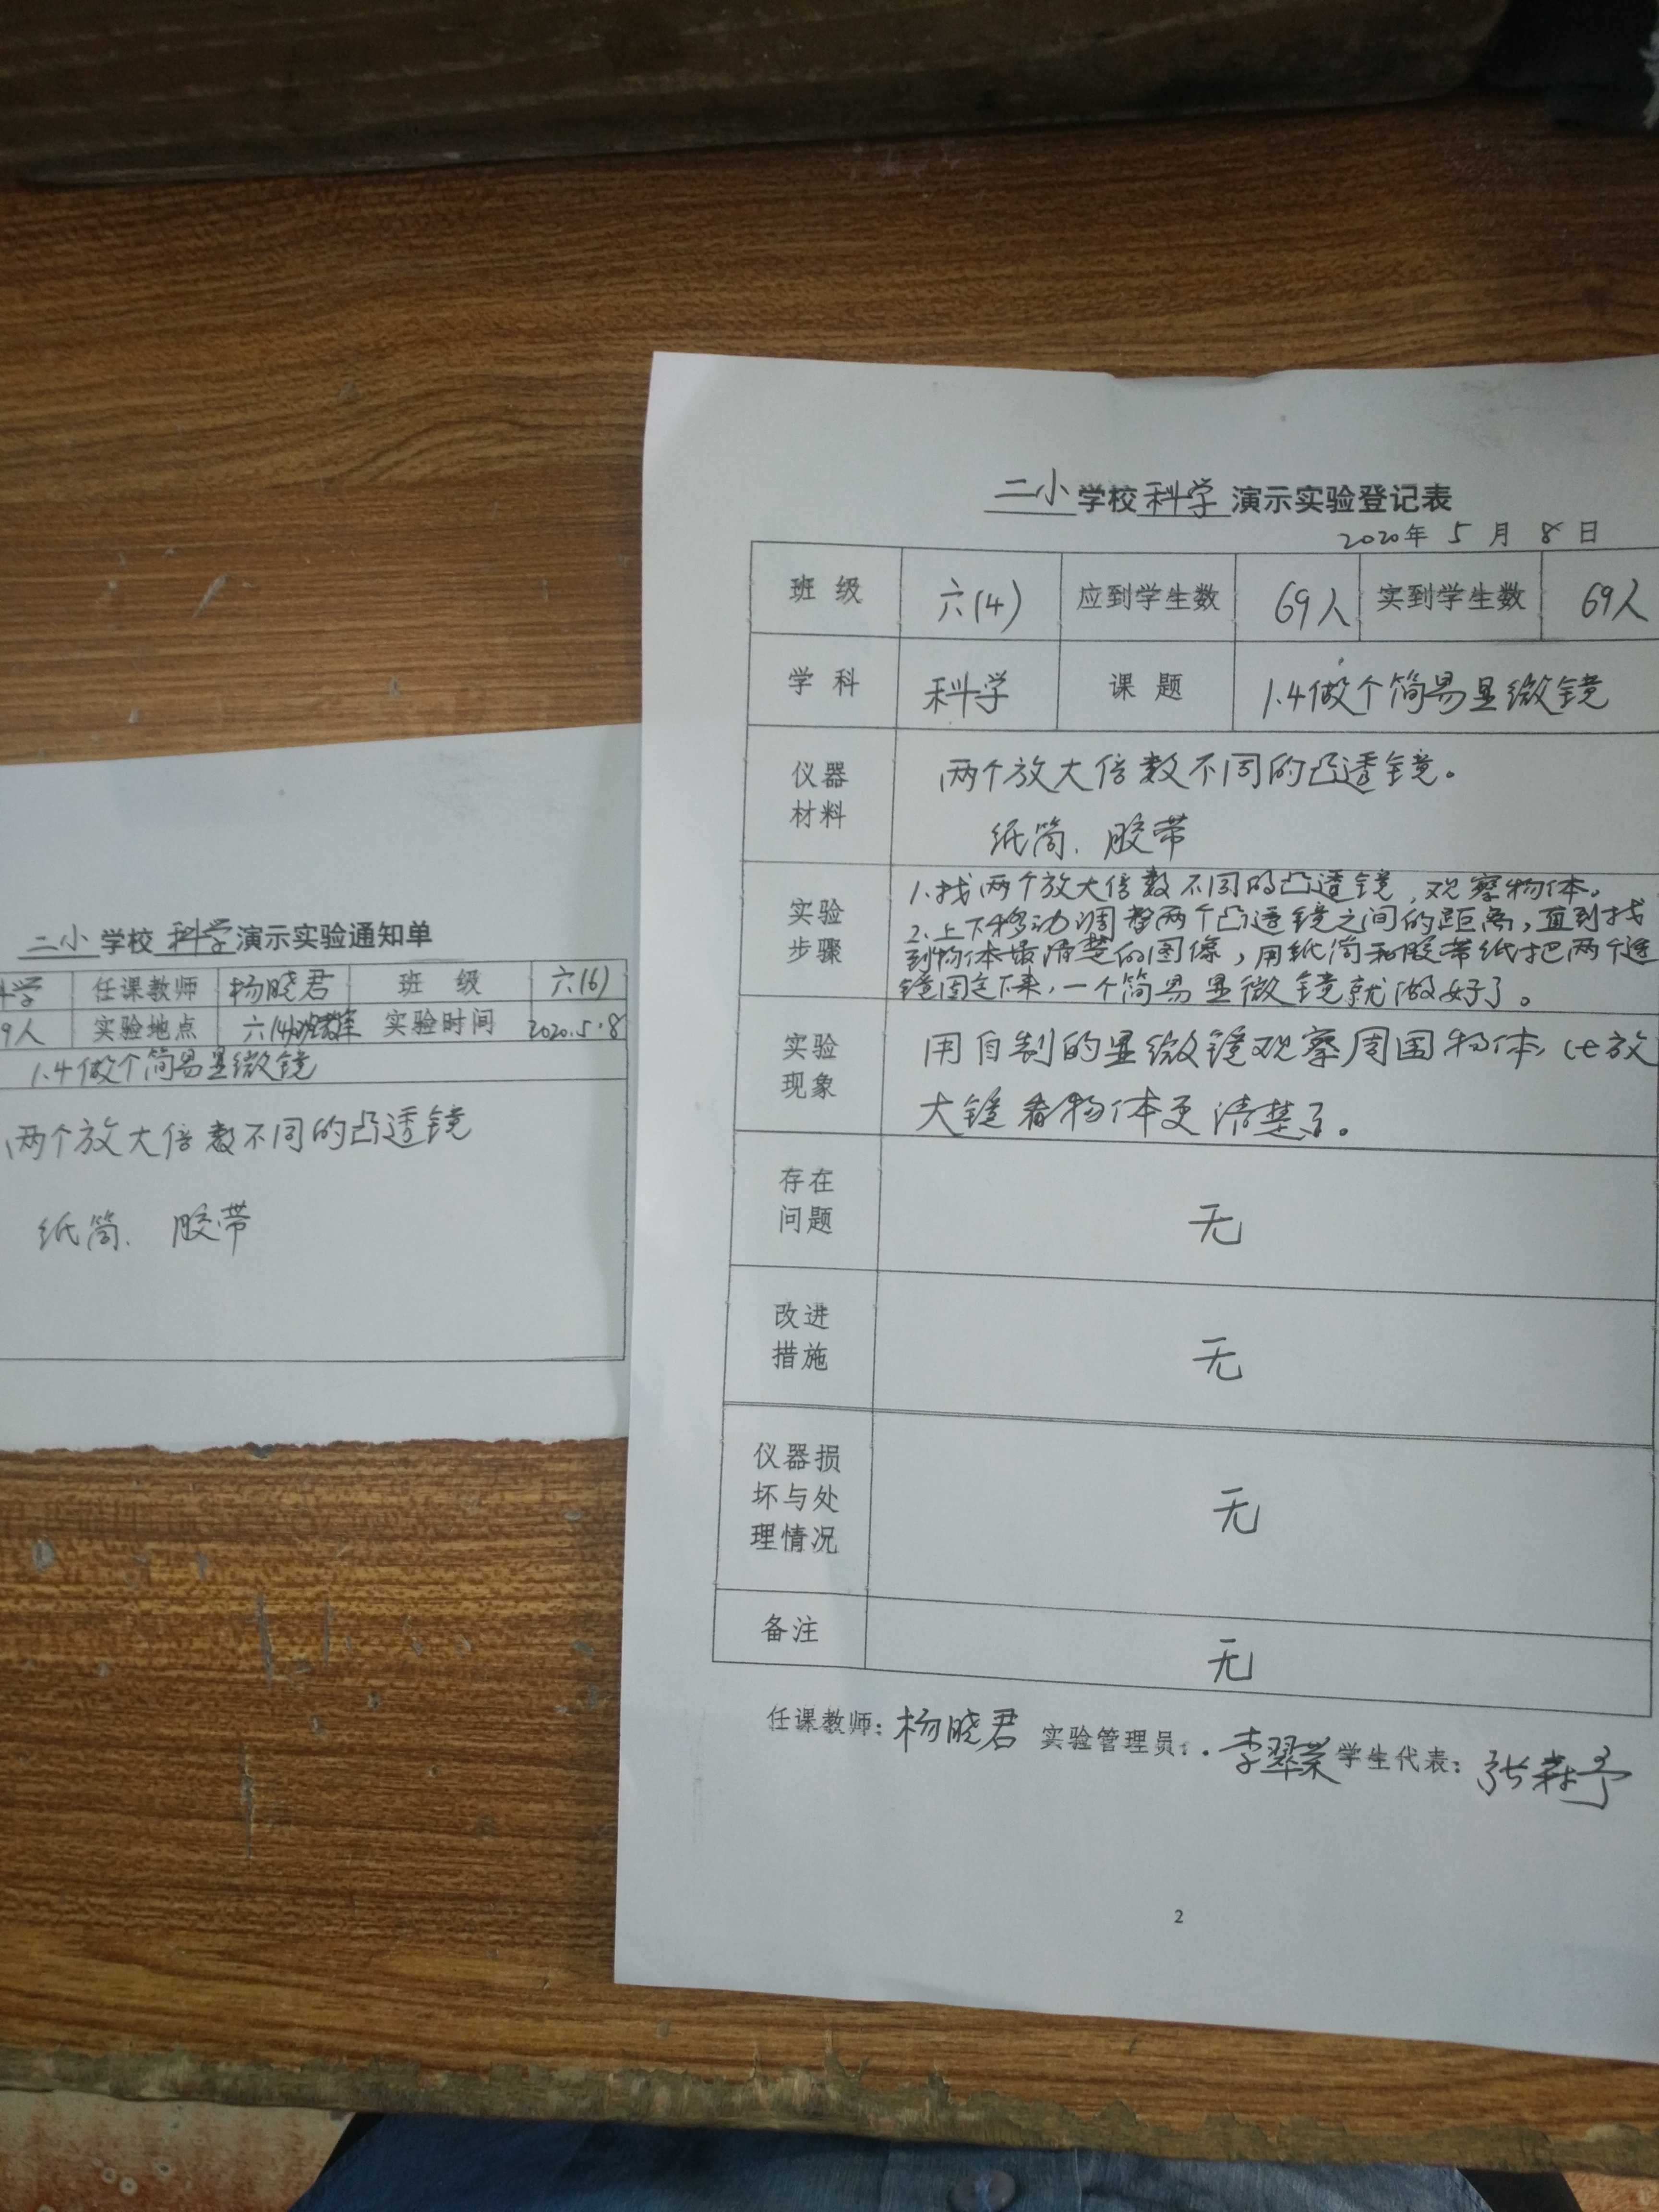 二小学校科学演示实验通知单
学 任课教师 杨晓君 班级 六(6)
9人 实验地点 六(4) 实验时间 2020.5.8
1.4做个简易显微镜
两个放大倍数不同的凸透镜
纸筒、胶带
二小学校科学演示实验登记表
2020年5月8日
班级 六(4) 应到学生数 69人 实到学生数 69人
学科 科学 课题 1.4做个简易显微镜
仪器材料 两个放大倍数不同的凸透镜。
纸筒、胶带
实验步骤 1.找两个放大倍数不同的凸透镜,观察物体。
2.上下移动调整两个凸透镜之间的距离,直到找
到物体最清楚的图像,用纸筒和胶带纸把两个透
镜固定下来,一个简易显微镜就做好了。
实验现象 用自制的显微镜观察周围物体,比放
大镜看物体更清楚了。
存在问题 无
改进措施 无
仪器损坏与处理情况 无
备注 无
任课教师:杨晓君 实验管理员:李翠荣 学生代表:张森予
2